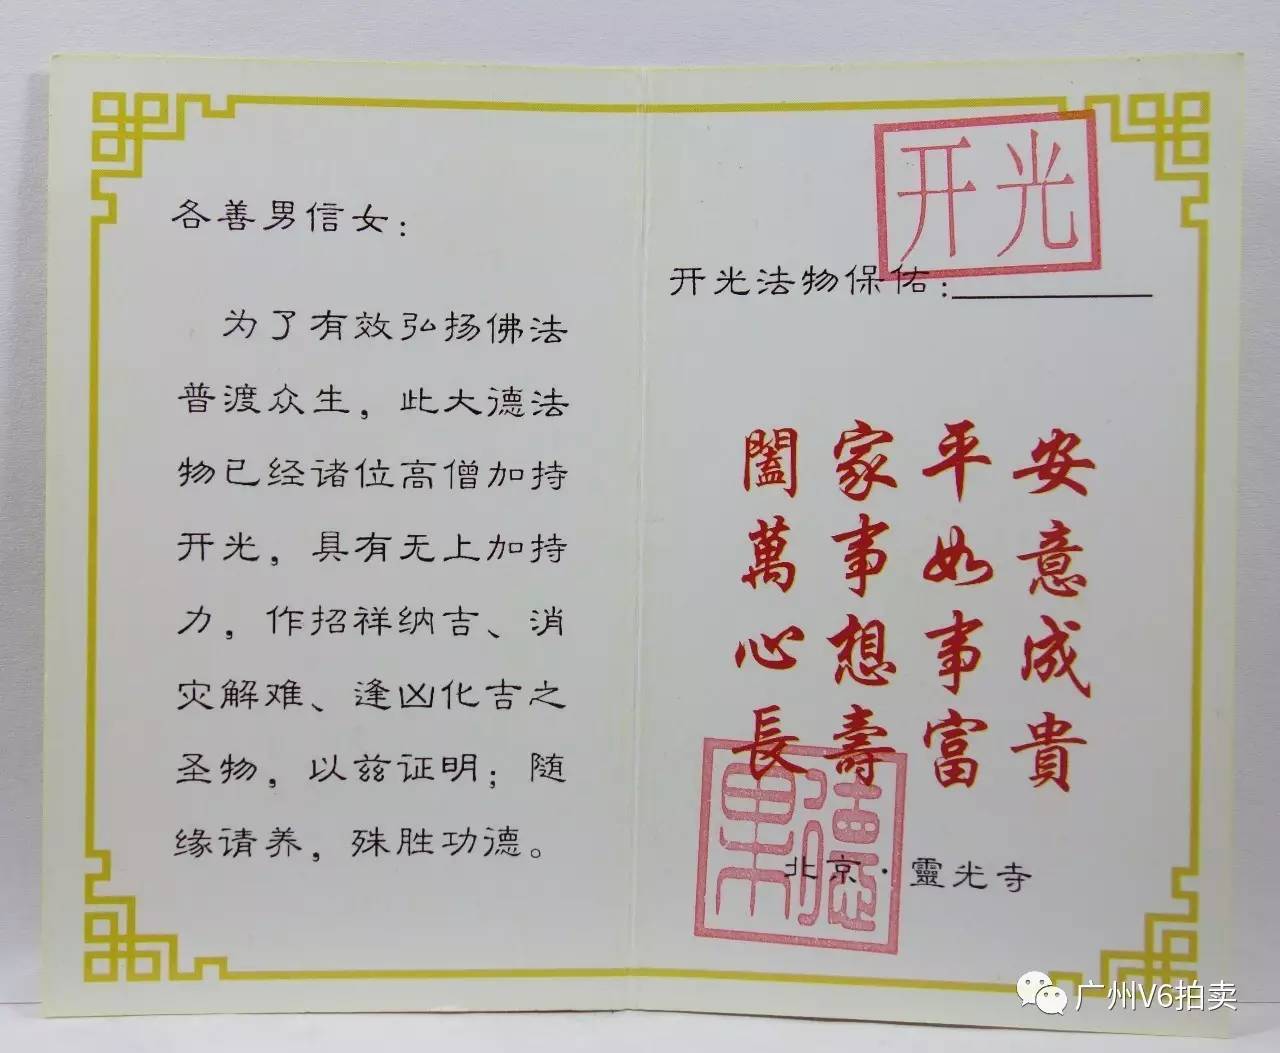 各善男信女：
为了有效弘扬佛法
普渡众生，此大德法
物已经诸位高僧加持
开光，具有无上加持
力，作招祥纳吉、消
灾解难、逢凶化吉之
圣物，以兹证明；随
缘请养，殊胜功德。
开光
开光法物保佑：
闔家平安
萬事如意
心想事成
長壽富貴
北京·靈光寺
广州V6拍卖